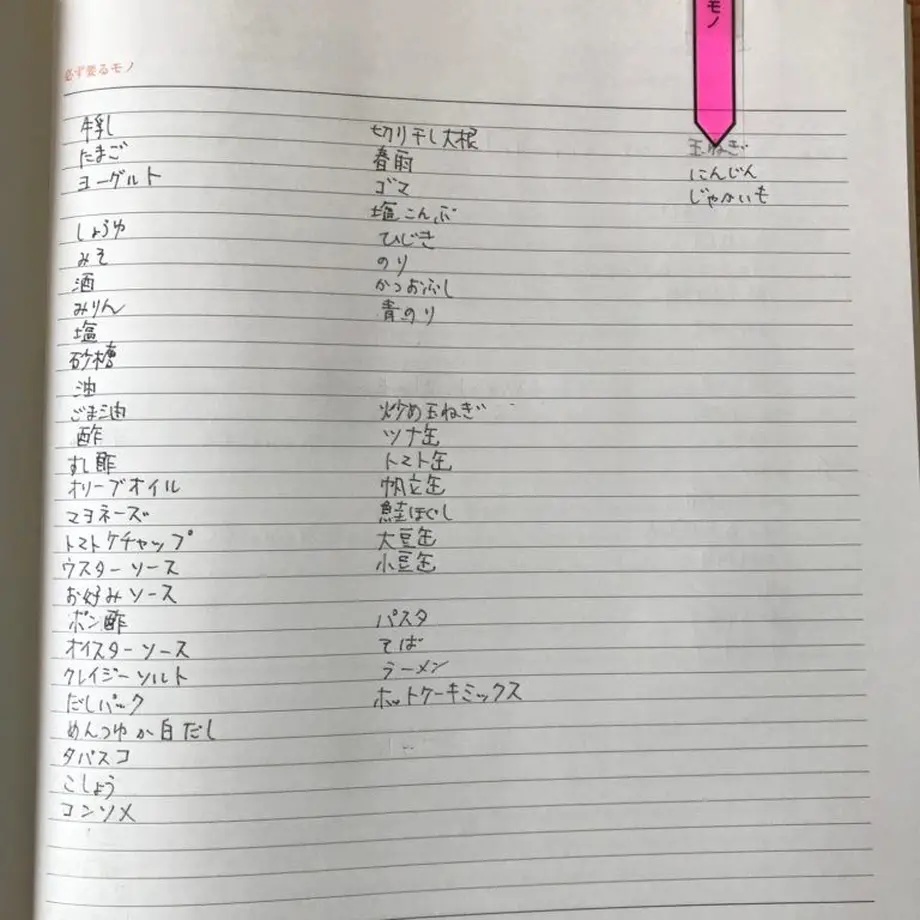 モノ
必ず要るモノ
牛乳
たまご
ヨーグルト
しょうゆ
みそ
酒
みりん
塩
砂糖
油
ごま油
酢
すし酢
オリーブオイル
マヨネーズ
トマトケチャップ
ウスターソース
お好みソース
ポン酢
オイスターソース
クレイジーソルト
だしパック
めんつゆか白だし
タバスコ
こしょう
コンソメ
切り干し大根
春雨
ゴマ
塩こんぶ
ひじき
のり
かつおぶし
青のり
炒め玉ねぎ
ツナ缶
トマト缶
帆立缶
鮭ほぐし
大豆缶
小豆缶
パスタ
そば
ラーメン
ホットケーキミックス
玉ねぎ
にんじん
じゃがいも